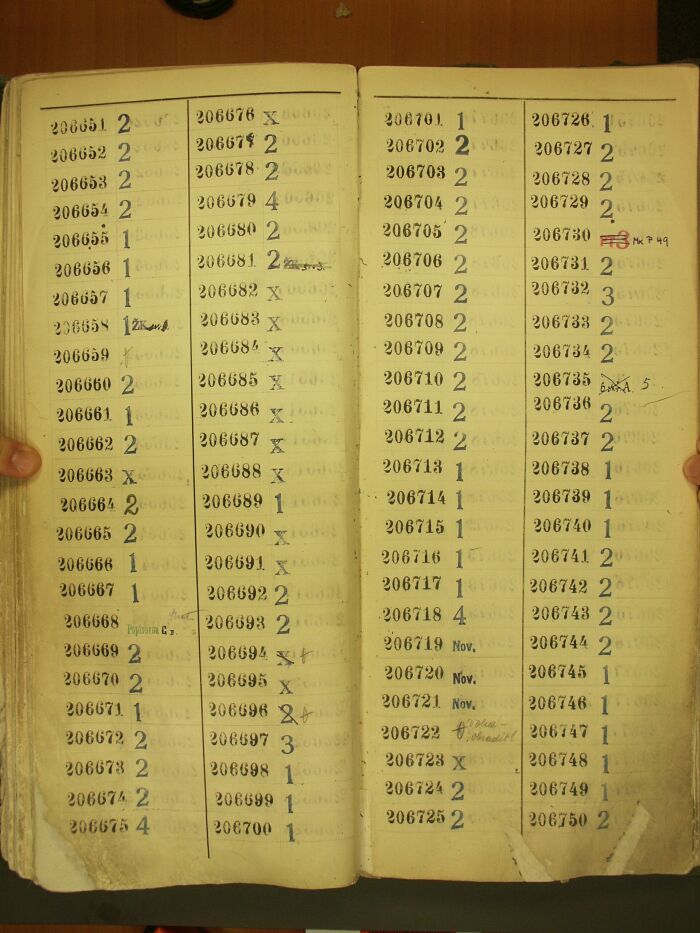 206651 2
206652 2
206653 2
206654 2
206655 1
206656 1
206657 1
206658 1
206659 †
206660 2
206661 1
206662 2
206663 x
206664 2
206665 2
206666 1
206667 1
206668 Papírovna C
206669 2
206670 2
206671 1
206672 2
206673 2
206674 2
206675 4
206676 x
206677 2
206678 2
206679 4
206680 2
206681 2
206682 x
206683 x
206684 x
206685 x
206686 x
206687 x
206688 x
206689 1
206690 x
206691 x
206692 2
206693 2
206694 x †
206695 x
206696 2 †
206697 3
206698 1
206699 1
206700 1
206701 1
206702 2
206703 2
206704 2
206705 2
206706 2
206707 2
206708 2
206709 2
206710 2
206711 2
206712 2
206713 1
206714 1
206715 1
206716 1
206717 1
206718 4
206719 Nov.
206720 Nov.
206721 Nov.
206722
206723 x
206724 2
206725 2
206726 1
206727 2
206728 2
206729 2
206730 3 Mk P 49
206731 2
206732 3
206733 2
206734 2
206735 5
206736 2
206737 2
206738 1
206739 1
206740 1
206741 2
206742 2
206743 2
206744 2
206745 1
206746 1
206747 1
206748 1
206749 1
206750 2